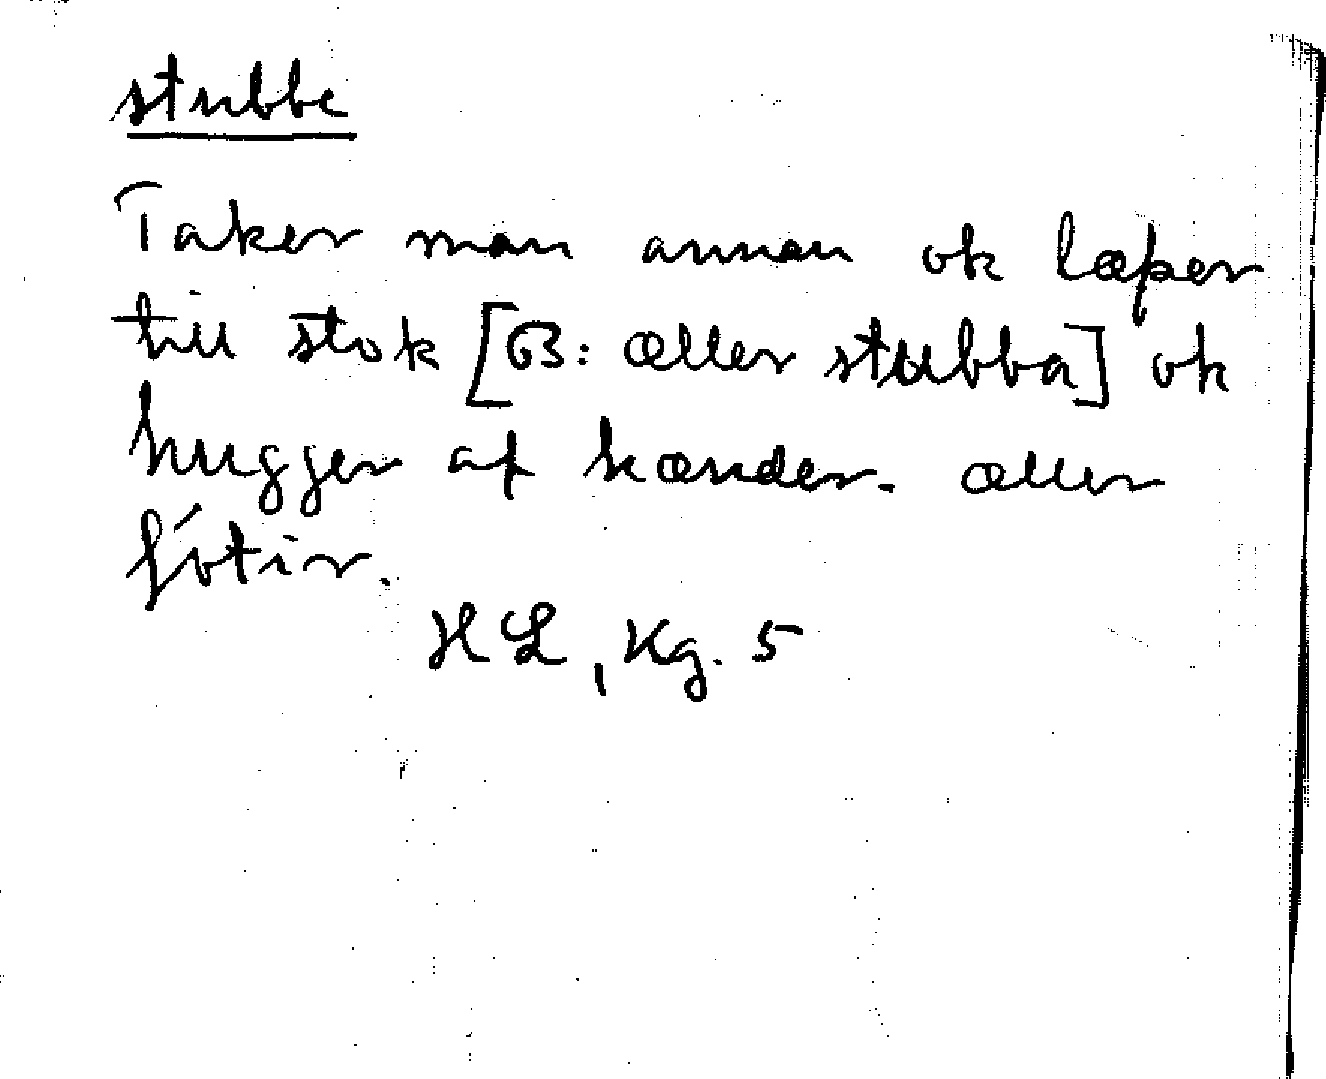 stubbe
Taker man annan ok læþer
till stok [B: æller stubba] ok
hugger af hænder. æller
fötir.
HL, Kg. 5